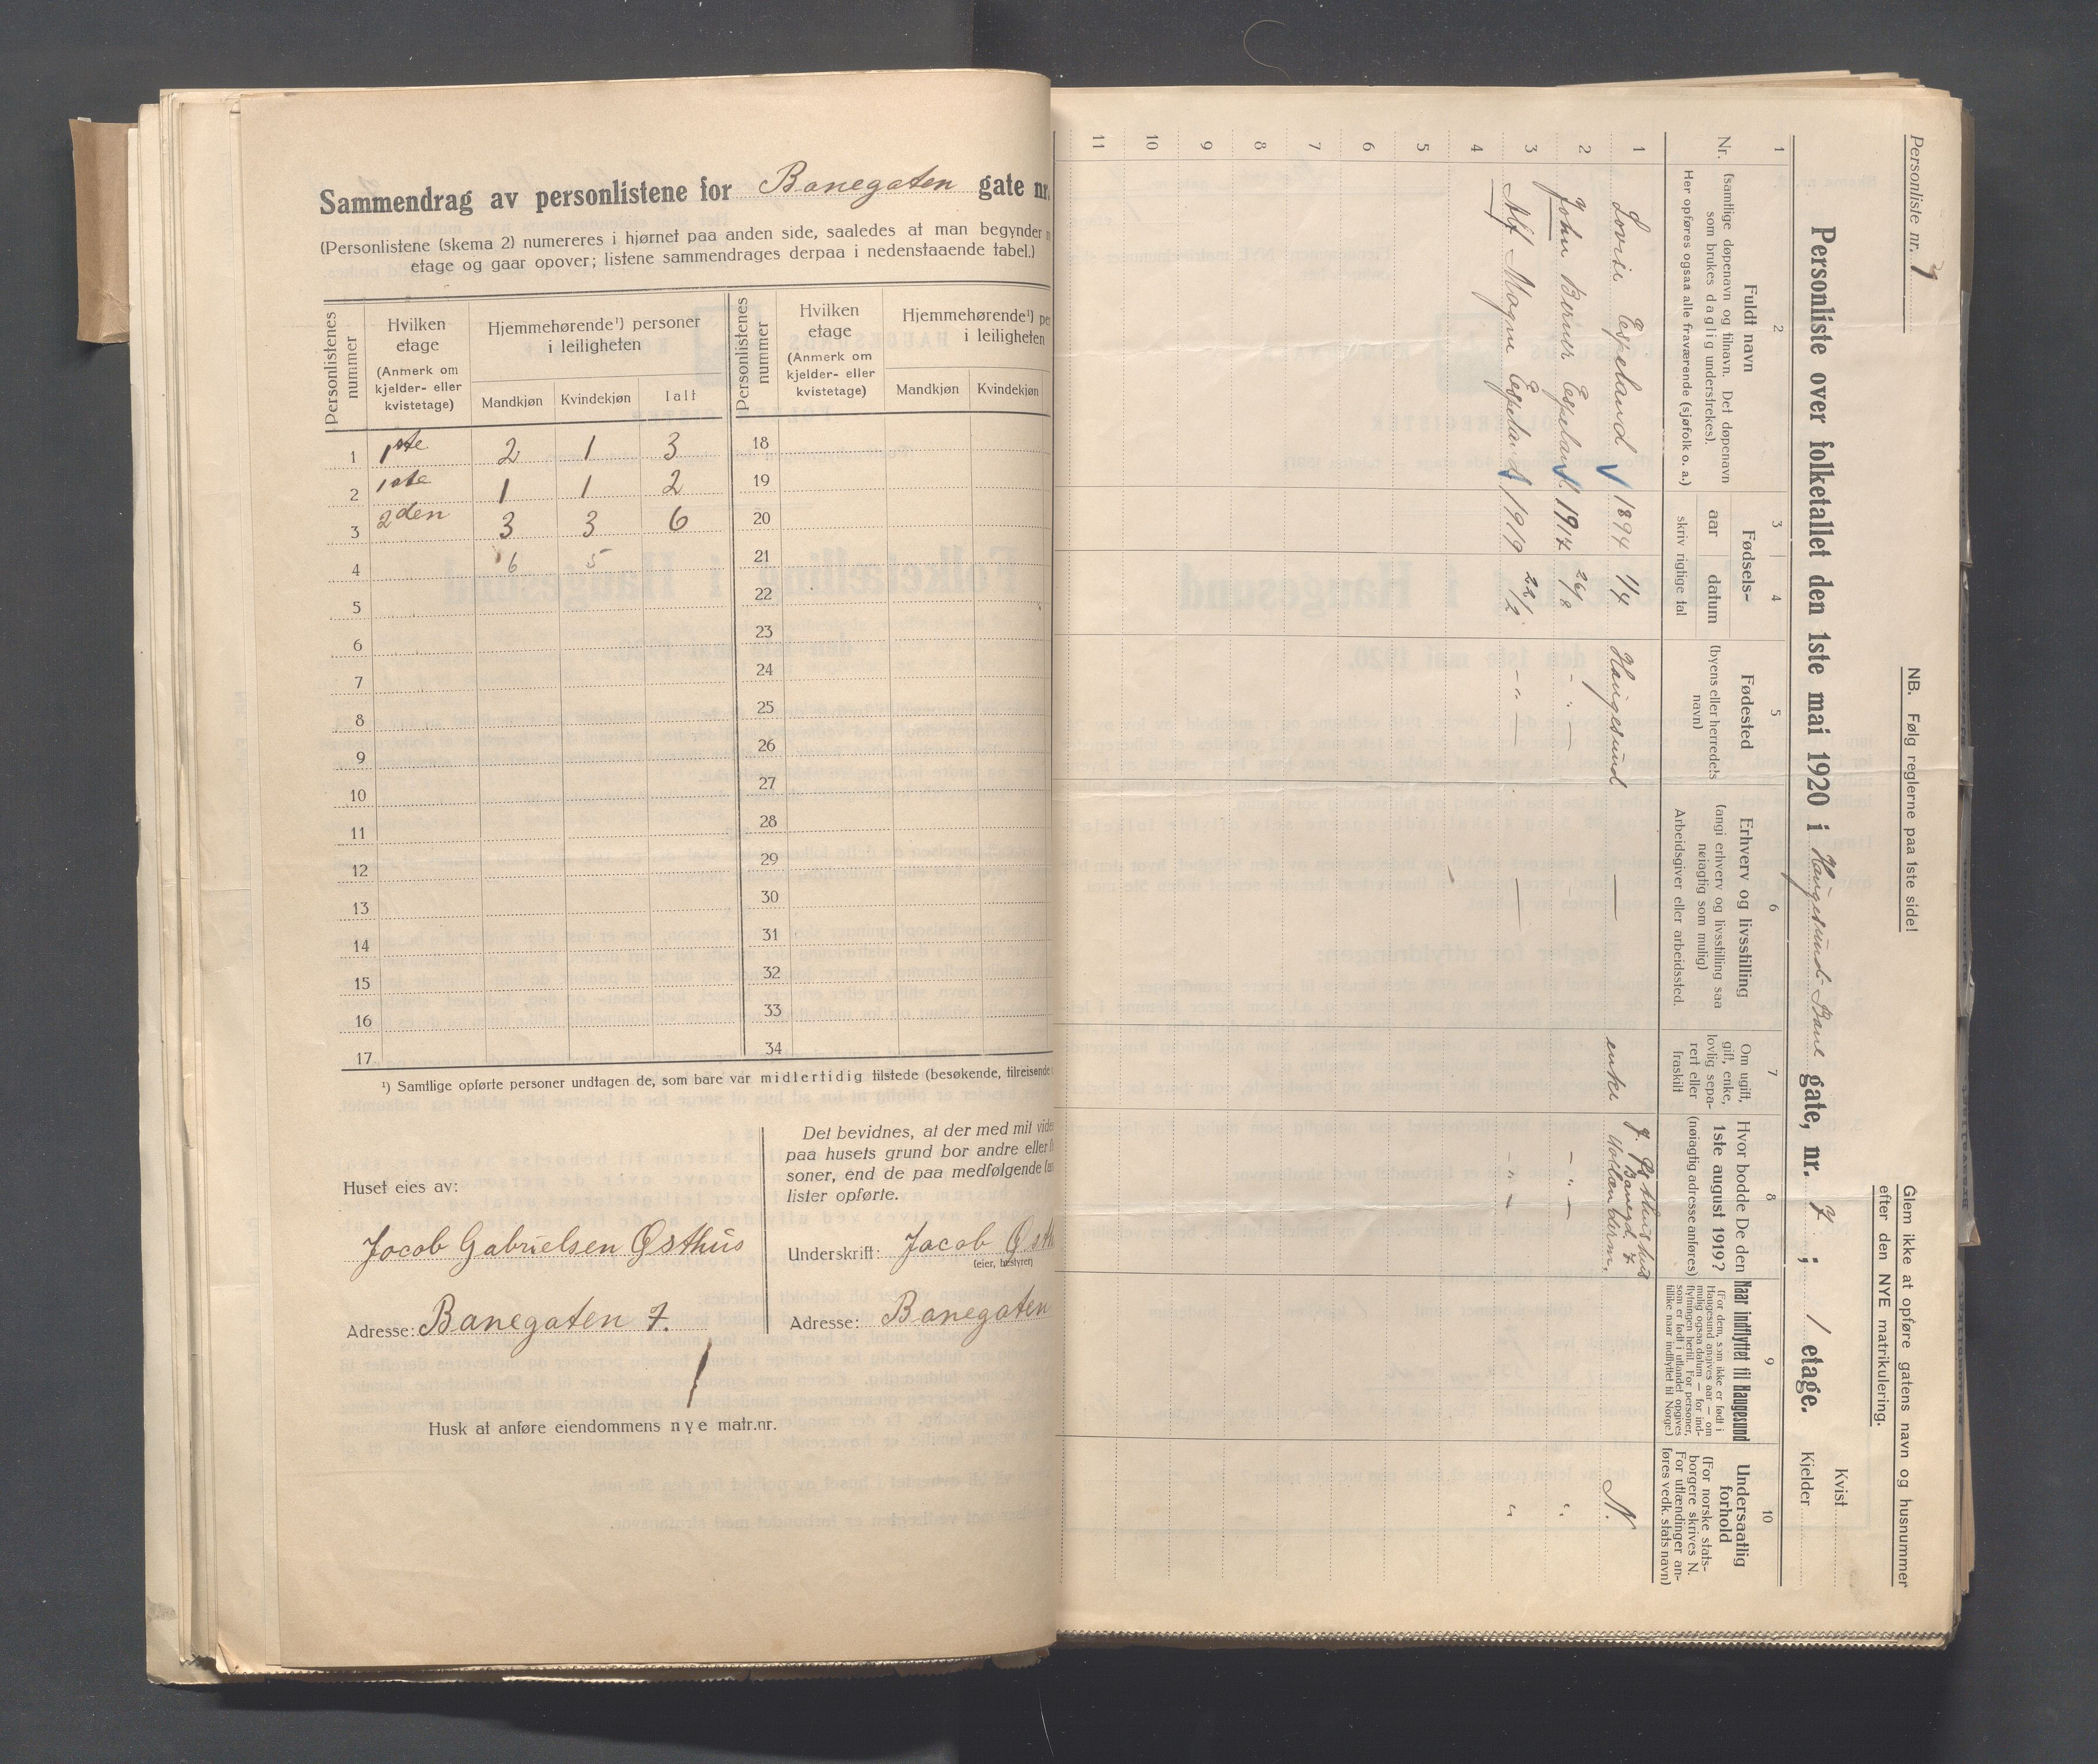 Sammendrag av personlistene for Banegaten gate nr.
(Personlistene (skema 2) numereres i hjørnet paa anden side, saaledes at man begynder
etage og gaar opover; listene sammendrages derpaa i nedenstaaende tabel.)
Personlistenes nummer
Hvilken etage
(Anmerk om kjelder- eller kvistetage)
Hjemmehørende¹) personer i leiligheten
Mandkjøn Kvindekjøn Ialt
Personlistenes nummer
Hvilken etage
(Anmerk om kjelder- eller kvistetage)
Hjemmehørende¹)
i leiligheten
Mandkjøn Kvindekjøn
1 1ste 2 1 3 18
2 1ste 1 1 2 19
3 2den 3 3 6 20
4 6 5 21
5 22
6 23
7 24
8 25
9 26
10 27
11 28
12 29
13 30
14 31
15 32
16 33
17 34
¹) Samtlige opførte personer undtagen de, som bare var midlertidig tilstede (besøkende, tilreisende
Huset eies av:
Jacob Gabrielsen Østhus
Adresse: Banegaten 7.
Det bevidnes, at der med mit
paa husets grund bor andre eller
soner, end de paa medfølgende
lister opførte.
Underskrift: Jacob
(eier, bestyrer)
Adresse: Banegaten
1
Husk at anføre eiendommens nye matr.nr.
Personliste nr.
NB. Følg reglerne paa 1ste side!
Glem ikke at opføre gatens navn og husnummer
efter den NYE matrikulering.
Personliste over folketallet den 1ste mai 1920 i Haugesund Bane gate, nr. 7 ; 1 etage.
Kvist
Kjelder
1 2 3 4 5 6 7 8 9 10
Nr.
Fuldt navn
(samtlige døpenavn og tilnavn. Det døpenavn
som brukes daglig understrekes).
Her opføres ogsaa alle fraværende (sjøfolk o. a.)
Fødsels-
aar datum
skriv rigtige tal
Fødested
(byens eller herredets
navn)
Erhverv og livsstilling
(angi erhverv og livsstilling saa
nøiagtig som mulig)
Arbeidsgiver eller arbeidssted.
Om ugift,
gift, enke,
lovlig sepa-
rert eller
fraskilt
Hvor bodde De den
1ste august 1919?
(nøiagtig adresse anføres)
Naar indflyttet til Haugesund
(For dem, som ikke er født i
Haugesund angives aar — om
mulig ogsaa datum — for ind-
flytningen hertil. For personer,
som er født i utlandet opgives
tillike naar indflyttet til Norge.)
Undersaatlig
forhold
(For norske stats-
borgere skrives N.
For utlændinger an-
føres vedk. stats navn)
1 Lovise Espeland 1894 1/4 Haugesund — enke J. Østhus hus Banegt. 7 N.
2 John Berner Espeland 1917 26/8 - „ — - „ — „
3 Alf Magne Espeland 1919 22/2 - „ — — - „ - „
4
5
6
7
8
9
10
11